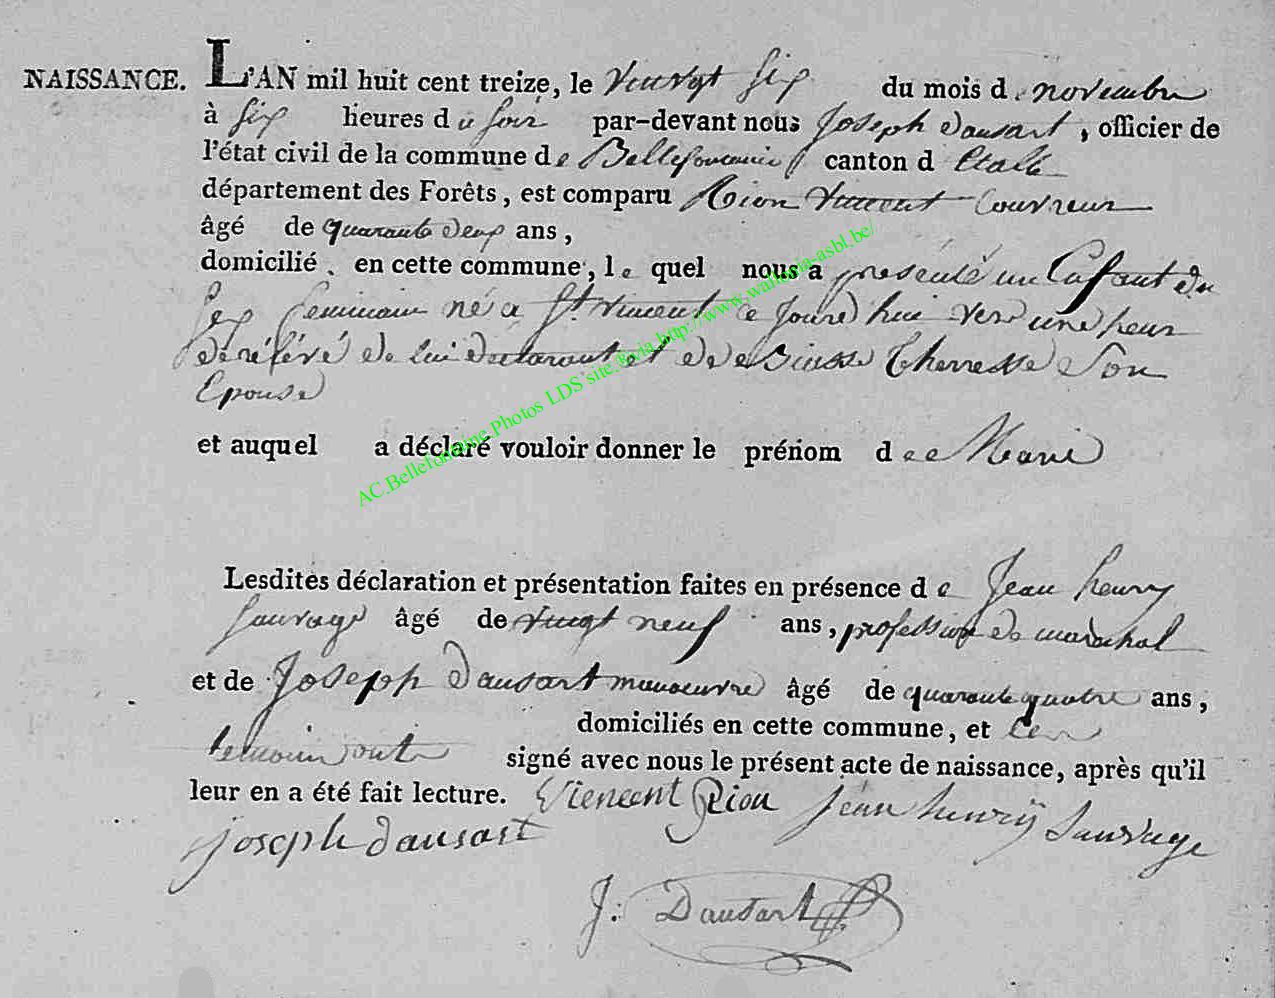 NAISSANCE. L'AN mil huit cent treize, le vingt six du mois de novembre
à six heures du soir par-devant nous Joseph dausart, officier de
l'état civil de la commune de Bellefontaine canton d Etalle
département des Forêts, est comparu Rion Vincent Couvreur
âgé de quarante deux ans,
domicilié en cette commune, le quel nous a présenté un Enfant du
sex feminin né a St. Vincent ce jourd hui vers une heur
de rélévé de lui declarant et de Therresse Son
Epouse
et auquel a déclaré vouloir donner le prénom de Marie
Lesdites déclaration et présentation faites en présence de Jean henry
Sauvage âgé de vingt neuf ans, profession de marechal
et de Joseph dausart manoeuvre âgé de quarante quatre ans,
domiciliés en cette commune, et les
temoins ont signé avec nous le présent acte de naissance, après qu'il
leur en a été fait lecture. Viencent Rion jean henrÿ Sauvage
joseph dausart
J: Dausart
AC.Bellefontaine.Photos LDS site.®via http://www.wallonia-asbl.be/